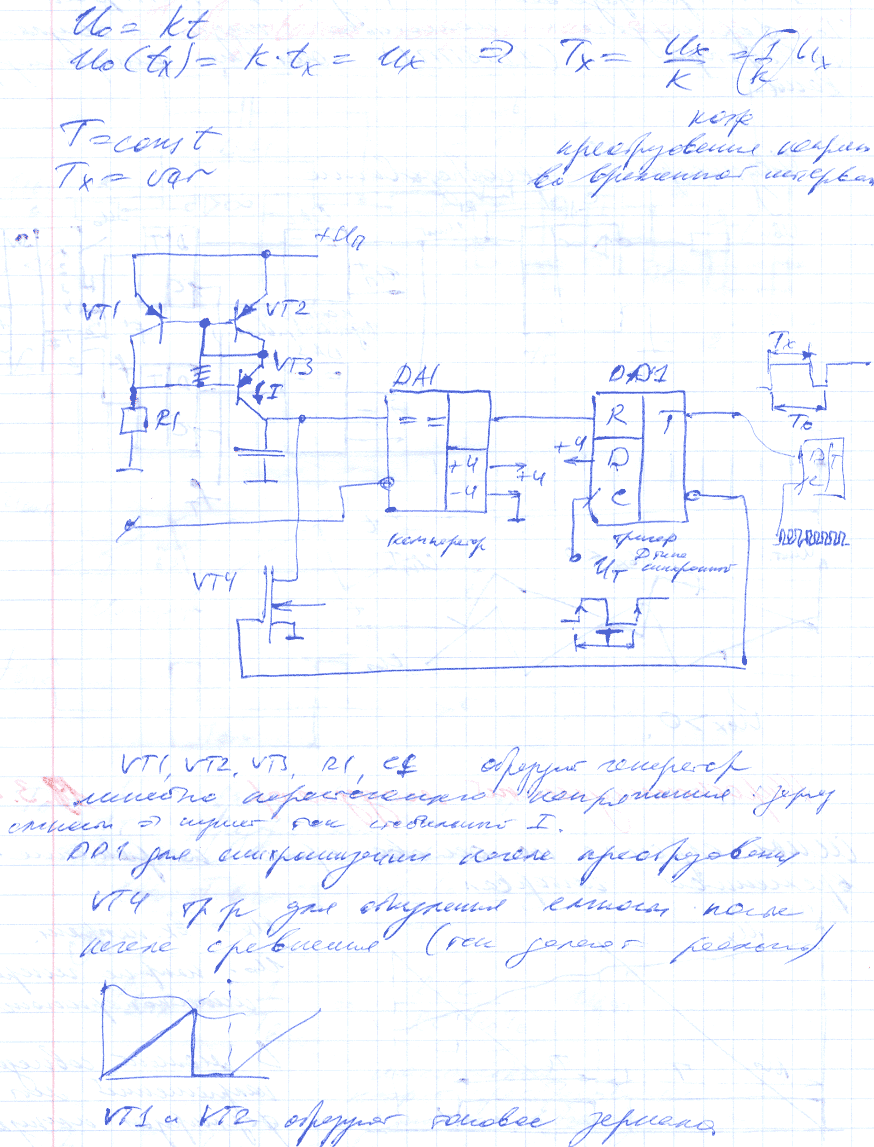 U₀ = kt
U₀(tx) = k·tx = Ux ⇒ Tx = Ux/k = (1/k) Ux
T = const
Tx = var
коэф
преобразования напряж
во временной интервал
+Uп
VT1
VT2
VT3
I
R1
DA1
= =
+U
-U
+U
компаратор
DD1
R
D
C
T
+U
UT
тригер
D типа
синхронный
T
Tx
T0
D T
C
VT4
VT1, VT2, VT3, R1, C1 образуют генератор
линейно нарастающего напряжения заряд
емкости ⇒ нужен ток стабильный I.
DD1 для синхронизации начала преобразования
VT4 тр-р для обнуления емкости
после сравнения (так делают реально)
VT1 и VT2 образуют токовое зеркало.